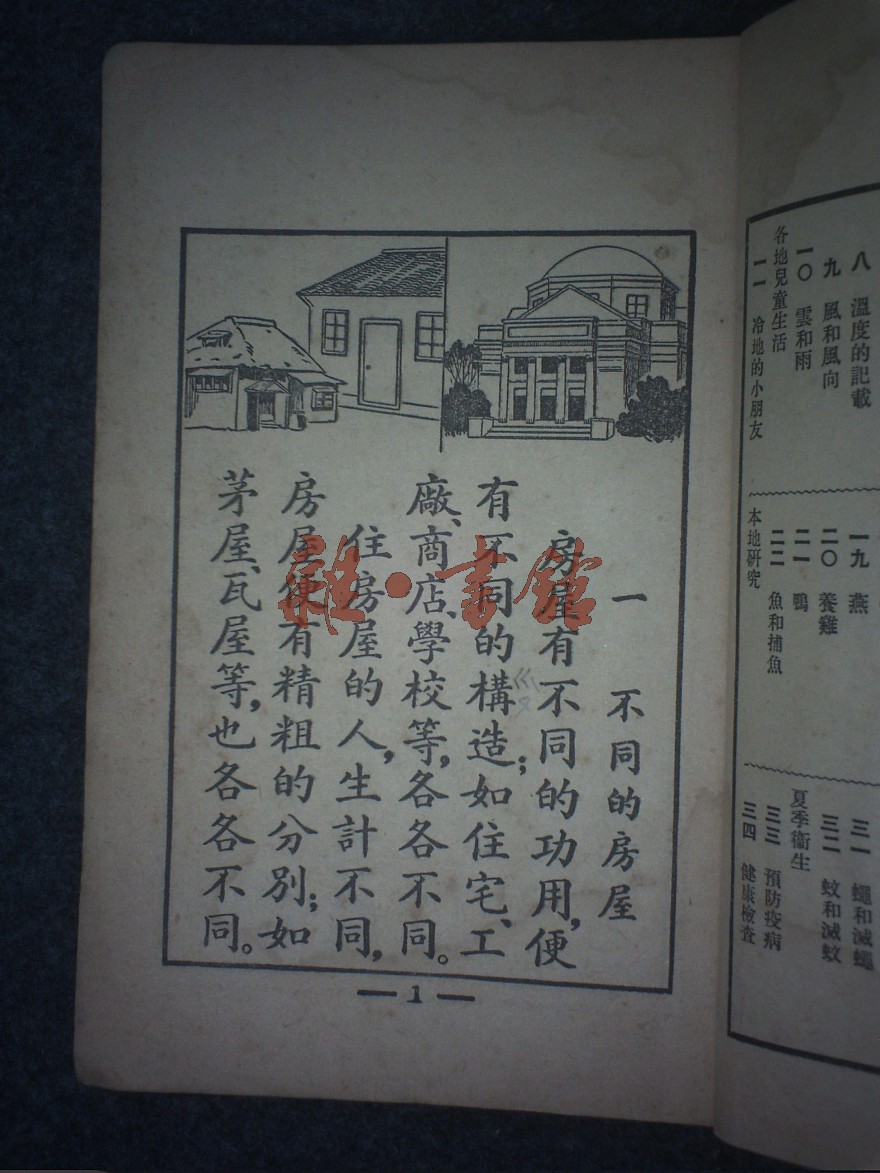 一 不同的房屋
房屋有不同的功用，便
有不同的構造；如住宅、工
廠、商店、學校等，各各不同。
住房屋的人，生計不同，
房屋便有精粗的分別；如
茅屋、瓦屋等，也各各不同。
1
八 溫度的記載
九 風和風向
一〇 雲和雨
各地兒童生活
一一 冷地的小朋友
一九 燕
二〇 養雞
二一 鴨
二二 魚和捕魚
本地研究
三一 蠅和滅蠅
三二 蚊和滅蚊
夏季衞生
三三 預防疫病
三四 健康檢查
雜·書館